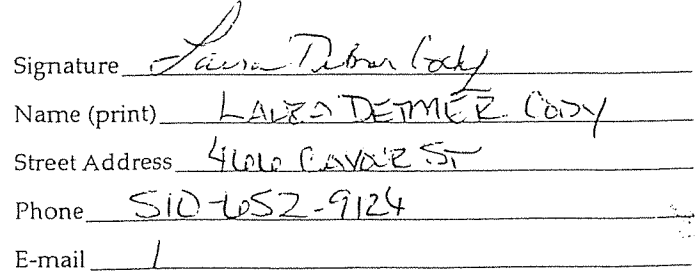 Signature Laura Detmer Cody
Name (print) LAURA DETMER CODY
Street Address 466 CAVOUR ST
Phone 510-652-9124
E-mail /